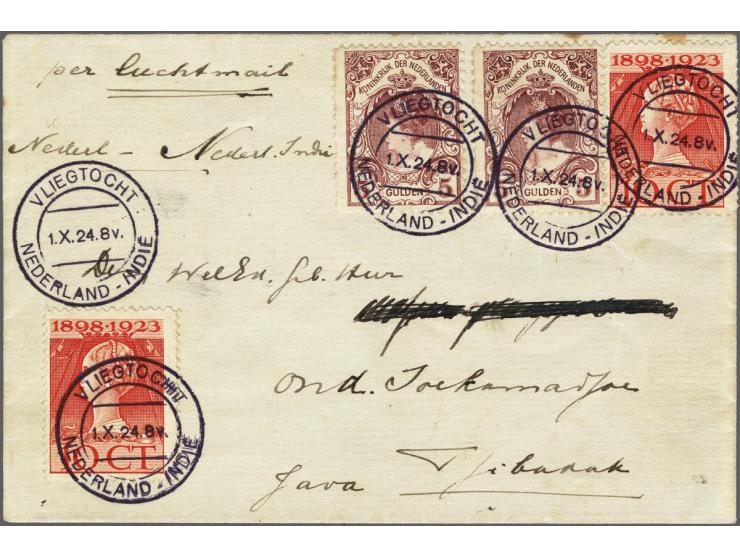 per luchtmail
Nederl - Nederl. Indië
KONINKRIJK DER NEDERLANDEN
5
GULDEN
KONINKRIJK DER NEDERLANDEN
5
GULDEN
1898·1923
10 CT
VLIEGTOCHT
1.X.24.8V.
NEDERLAND-INDIË
VLIEGTOCHT
1.X.24.8V.
NEDERLAND-INDIË
VLIEGTOCHT
1.X.24.8V.
NEDERLAND-INDIË
VLIEGTOCHT
1.X.24.8V.
NEDERLAND-INDIË
Den WelEd. Geb. Heer
Ond. Soekamadjoe
Java Tjibadak
1898·1923
CT
VLIEGTOCHT
1.X.24.8V.
NEDERLAND-INDIË